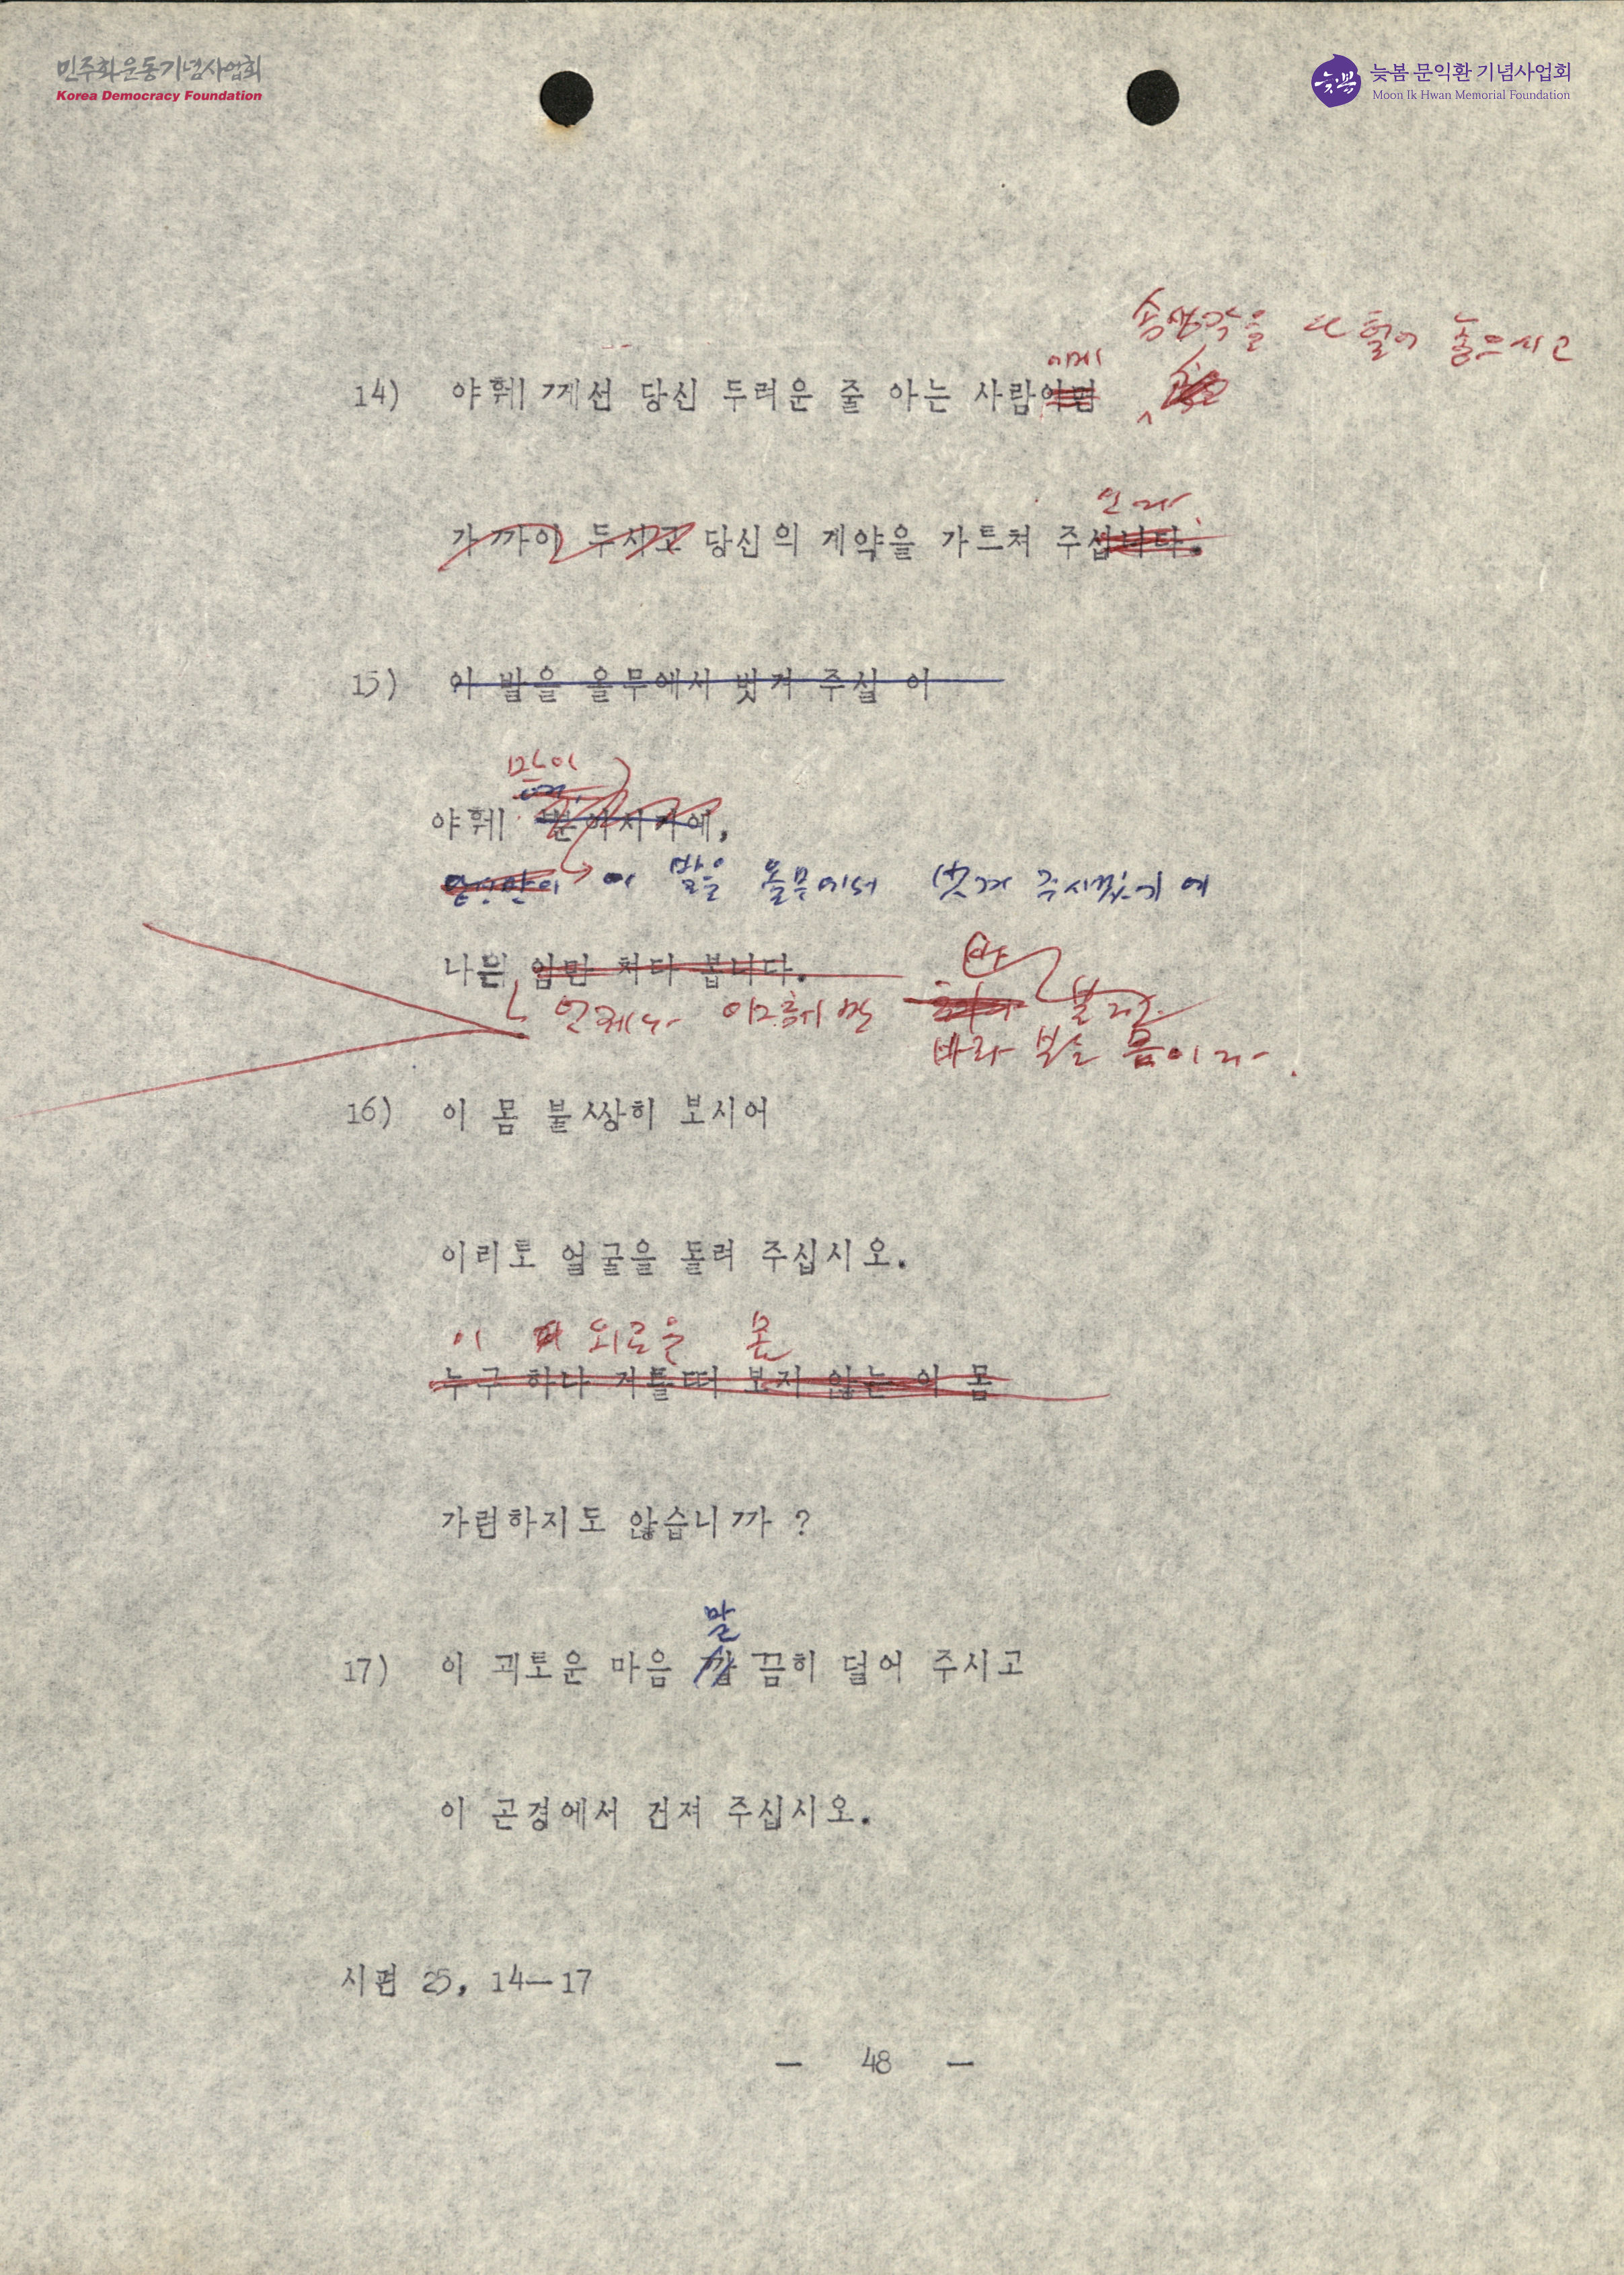 민주화운동기념사업회
Korea Democracy Foundation
늦봄
늦봄 문익환 기념사업회
Moon Ik Hwan Memorial Foundation
속생각을 다 털어 놓으시고
에게
14) 야훼께선 당신 두려운 줄 아는 사람이면
신다.
가까이 두시고 당신의 계약을 가르쳐 주십니다.
15) 이 발을 올무에서 벗겨 주실 이
만이
야훼 뿐이시기에,
당신만이 이 발을 올무에서 벗겨 주시겠기에
나는 임만 쳐다 봅니다.
언제나 야훼만
바라 보는 몸이다.
16) 이 몸 불쌍히 보시어
이리로 얼굴을 돌려 주십시오.
이 외로운 몸
누구 하나 거들떠 보지 않는 이 몸
가련하지도 않습니까 ?
말
17) 이 괴로운 마음 깔끔히 덜어 주시고
이 곤경에서 건져 주십시오.
시편 25, 14—17
— 48 —